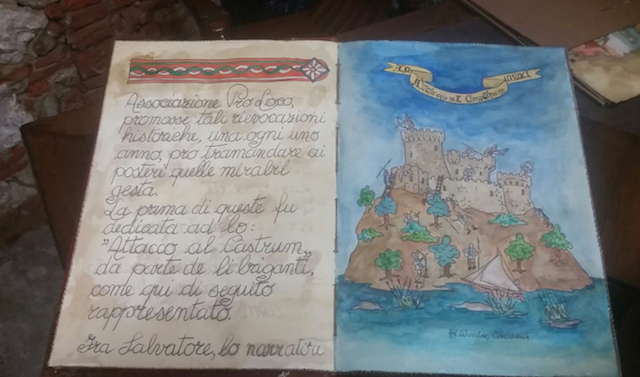 Associazione Pro Loco,
promosse tali rievocazioni
historiche, una ogni uno
anno, pro tramandare ai
posteri quelle mirabil
gesta.
La prima di queste fu
dedicata ad lo:
"Attacco al Castrum„
da parte de li briganti,
come qui di seguito
rappresentato.
Fra Salvatore, lo narratore
A.D.
al Castrum